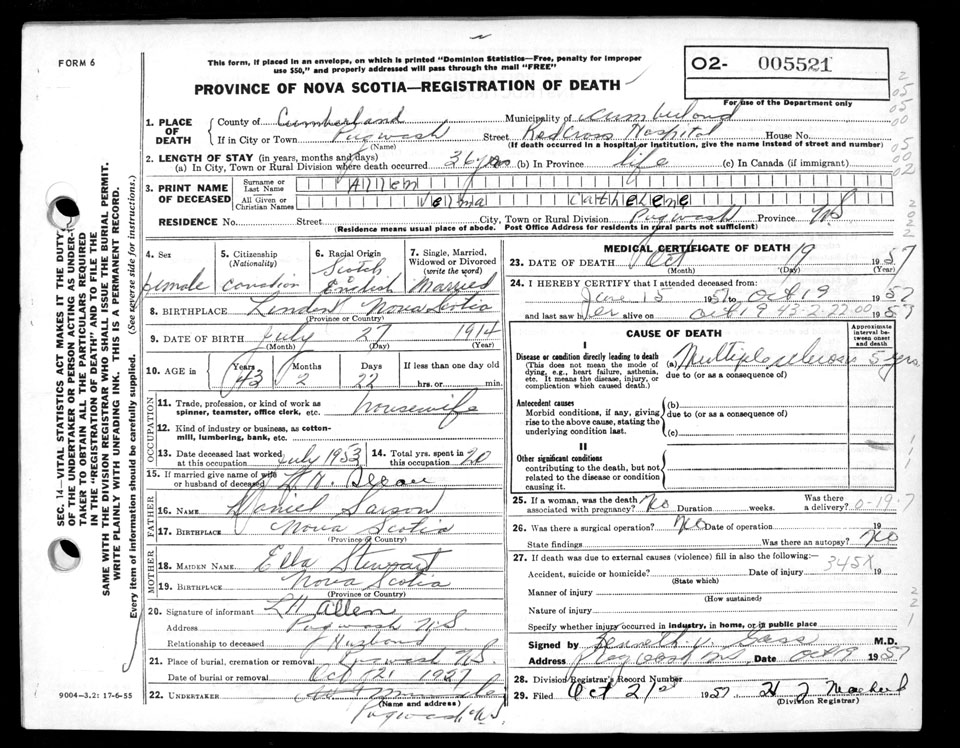 FORM 6
This form, if placed in an envelope, on which is printed "Dominion Statistics—Free, penalty for improper
use $50," and properly addressed will pass through the mail "FREE"
O2- 005521
PROVINCE OF NOVA SCOTIA—REGISTRATION OF DEATH
For use of the Department only
1. PLACE OF DEATH
County of Cumberland Municipality of Cumberland
If in City or Town Pugwash Street Red Cross Hospital House No.
(Name) (If death occurred in a hospital or institution, give the name instead of street and number)
2. LENGTH OF STAY (in years, months and days)
(a) In City, Town or Rural Division where death occurred 36 yrs (b) In Province life (c) In Canada (if immigrant)
3. PRINT NAME OF DECEASED
Surname or Last Name Allen
All Given or Christian Names Velma Cathelene
RESIDENCE No. Street City, Town or Rural Division Pugwash Province N.S
(Residence means usual place of abode. Post Office Address for residents in rural parts not sufficient)
4. Sex female
5. Citizenship (Nationality) Canadian
6. Racial Origin Scotch & English
7. Single, Married, Widowed or Divorced (write the word) Married
8. BIRTHPLACE Linden Nova Scotia
(Province or Country)
9. DATE OF BIRTH July 27 1914
(Month) (Day) (Year)
10. AGE in Years 43 Months 2 Days 22 If less than one day old
hrs. or min.
OCCUPATION
11. Trade, profession, or kind of work as spinner, teamster, office clerk, etc. Housewife
12. Kind of industry or business, as cotton-mill, lumbering, bank, etc.
13. Date deceased last worked at this occupation July 1953 14. Total yrs. spent in this occupation 20
15. If married give name of wife or husband of deceased L. H. Allen
FATHER
16. NAME Daniel
17. BIRTHPLACE Nova Scotia
(Province or Country)
MOTHER
18. MAIDEN NAME Ella Stewart
19. BIRTHPLACE Nova Scotia
(Province or Country)
20. Signature of informant L H Allen
Address Pugwash N.S.
Relationship to deceased Husband
21. Place of burial, cremation or removal Pugwash N.S.
Date of burial or removal Oct 21 1957
22. UNDERTAKER
(Name and address)
Pugwash N.S
MEDICAL CERTIFICATE OF DEATH
23. DATE OF DEATH Oct 19 1957
(Month) (Day) (Year)
24. I HEREBY CERTIFY that I attended deceased from:
June 15 1957 to Oct 19 1957
and last saw her alive on Oct 19 43-2-22 00 1957
CAUSE OF DEATH
Approximate interval between onset and death
I
Disease or condition directly leading to death
(This does not mean the mode of dying, e.g., heart failure, asthenia, etc. It means the disease, injury, or complication which caused death.)
(a) Multiple sclerosis 5 yrs
due to (or as a consequence of)
Antecedent causes
Morbid conditions, if any, giving rise to the above cause, stating the underlying condition last.
(b)
due to (or as a consequence of)
(c)
II
Other significant conditions
contributing to the death, but not related to the disease or condition causing it.
25. If a woman, was the death associated with pregnancy? No Duration weeks. Was there a delivery? 0-19-7
26. Was there a surgical operation? No Date of operation 19
State findings Was there an autopsy? No
27. If death was due to external causes (violence) fill in also the following:—
Accident, suicide or homicide? Date of injury 345X 19
(State which)
Manner of injury
(How sustained)
Nature of injury
Specify whether injury occurred in industry, in home, or in public place
Signed by Kenneth V. Gass M.D.
Address Pugwash NS Date Oct 19 1957
28. Division Registrar's Record Number
29. Filed Oct 21st 1957 H J
(Division Registrar)
9004-3.2: 17-6-55
SEC. 14—VITAL STATISTICS ACT MAKES IT THE DUTY
OF THE UNDERTAKER OR PERSON ACTING AS UNDER-
TAKER TO OBTAIN ALL THE PARTICULARS REQUIRED
IN THE "REGISTRATION OF DEATH" AND TO FILE THE
SAME WITH THE DIVISION REGISTRAR WHO SHALL ISSUE THE BURIAL PERMIT.
WRITE PLAINLY WITH UNFADING INK. THIS IS A PERMANENT RECORD.
Every item of information should be carefully supplied. (See reverse side for instructions.)